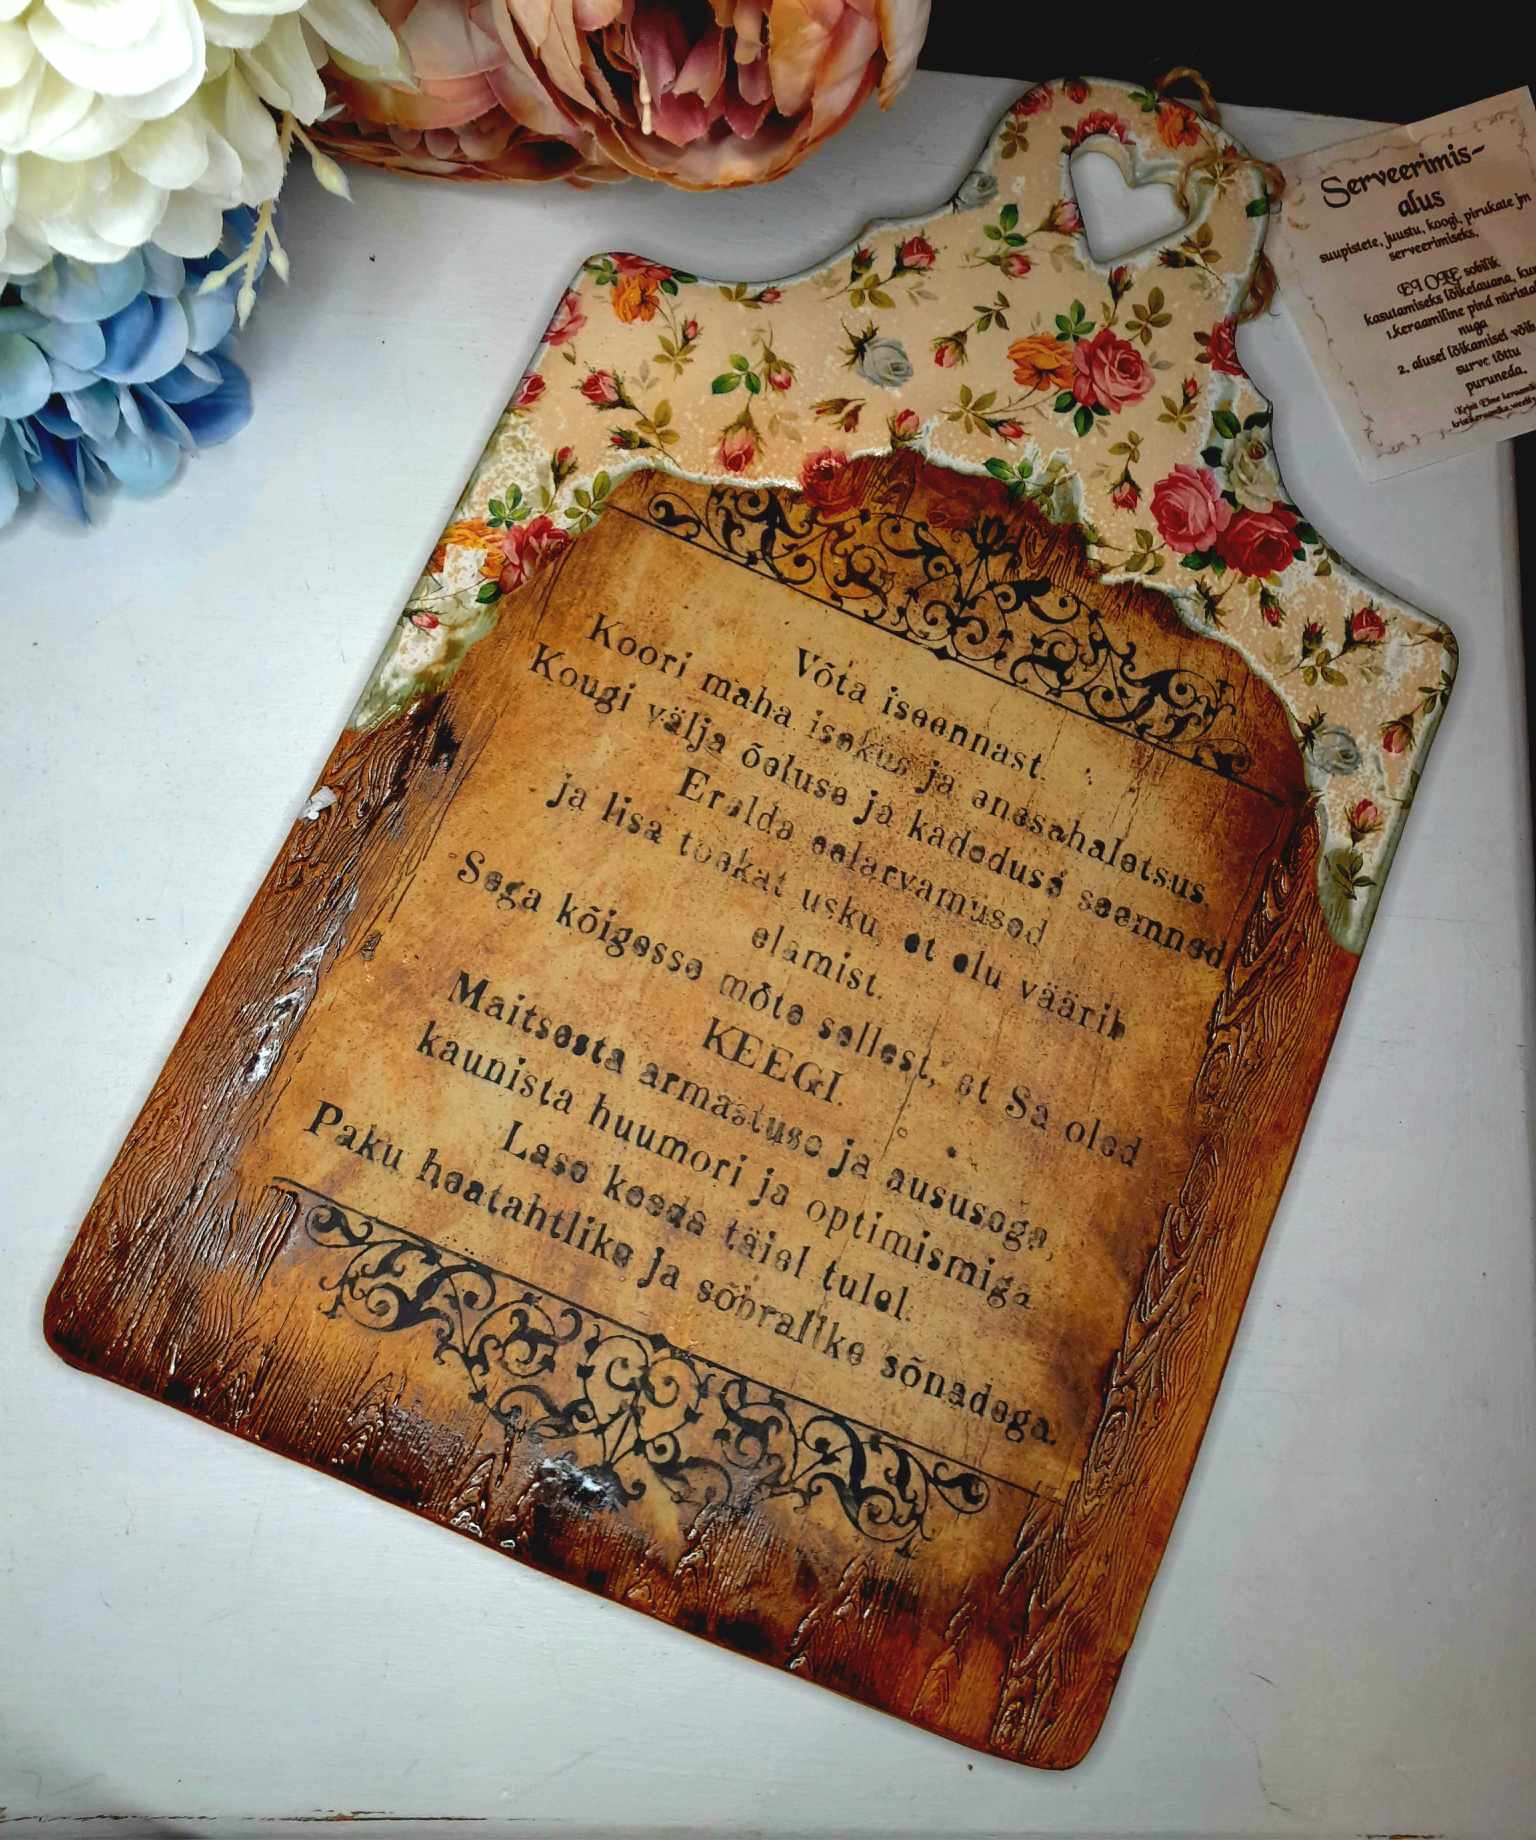 Võta iseennast.
Koori maha isekus ja enesehaletsus.
Kougi välja õeluse ja kadeduse seemned
Eralda eelarvamused
ja lisa toekat usku, et elu väärib
elamist.
Sega kõigesse mõte sellest, et Sa oled
KEEGI.
Maitsesta armastuse ja aususega,
kaunista huumori ja optimismiga.
Lase keeda täiel tulel.
Paku heatahtlike ja sõbralike sõnadega.
Serveerimis-
alus
suupistete, juustu, koogi, pirukate jm
serveerimiseks.
EI OLE sobilik
kasutamiseks lõikelauana, kuna
1.keraamiline pind nüristab
nuga
2. alusel lõikamisel võib
surve tõttu
puruneda.